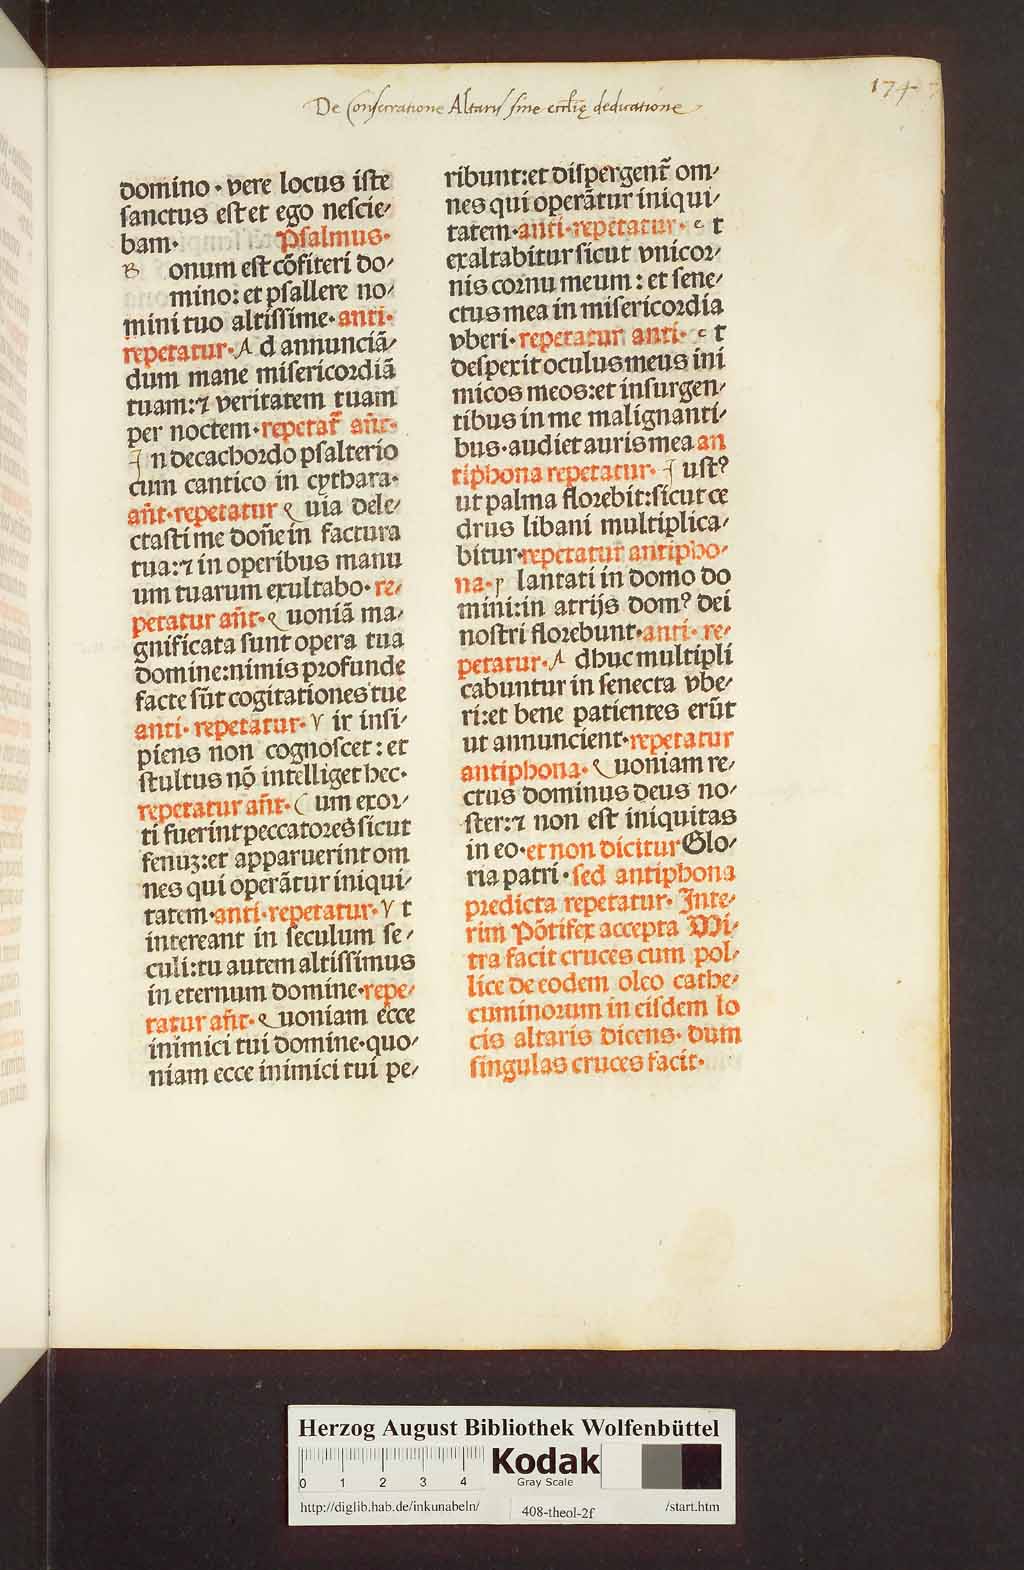 De Consecratione Altaris sine ecclię dedicatione
174
domino· vere locus iste
sanctus est et ego nescie⸗
bam· Psalmus·
B onum est cõfiteri do⸗
mino: et psallere no⸗
mini tuo altissime· anti·
repetatur· A d annunciã⸗
dum mane misericordiã
tuam: ⁊ veritatem tuam
per noctem· repetat᷑ añt·
I n decachordo psalterio
cum cantico in cythara·
añt· repetatur Q uia dele⸗
ctasti me doñe in factura
tua: ⁊ in operibus manu
um tuarum exultabo· re⸗
petatur añt· Q uoniã ma⸗
gnificata sunt opera tua
domine: nimis profunde
facte sũt cogitationes tue
anti· repetatur· V ir insi⸗
piens non cognoscet: et
stultus nõ intelliget hec·
repetatur añt· C um exor⸗
ti fuerint peccatores sicut
fenuꝫ: et apparuerint om
nes qui operãtur iniqui⸗
tatem· anti· repetatur· V t
intereant in seculum se⸗
culi: tu autem altissimus
in eternum domine· repe⸗
tatur añt· Q uoniam ecce
inimici tui domine· quo⸗
niam ecce inimici tui pe⸗
ribunt: et dispergent᷑ om⸗
nes qui operãtur iniqui⸗
tatem· anti· repetatur· E t
exaltabitur sicut vnicor⸗
nis cornu meum: et sene⸗
ctus mea in misericordia
vberi· repetatur anti· E t
despexit oculus meus ini
micos meos: et insurgen⸗
tibus in me malignanti⸗
bus· audiet auris mea an
tiphona repetatur· I ustꝰ
ut palma florebit: sicut ce
drus libani multiplica⸗
bitur· repetatur antipho⸗
na· P lantati in domo do
mini: in atrijs domꝰ dei
nostri florebunt· anti· re⸗
petatur· A dhuc multipli
cabuntur in senecta vbe⸗
ri: et bene patientes erũt
ut annuncient· repetatur
antiphona· Q uoniam re⸗
ctus dominus deus no⸗
ster: ⁊ non est iniquitas
in eo· et non dicitur Glo⸗
ria patri· sed antiphona
predicta repetatur· Inte⸗
rim Põtifex accepta Mi⸗
tra facit cruces cum pol⸗
lice de eodem oleo cathe⸗
cuminorum in eisdem lo
cis altaris dicens· dum
singulas cruces facit·
Herzog August Bibliothek Wolfenbüttel
0 1 2 3 4
Kodak
Gray Scale
http://diglib.hab.de/inkunabeln/
408-theol-2f
/start.htm